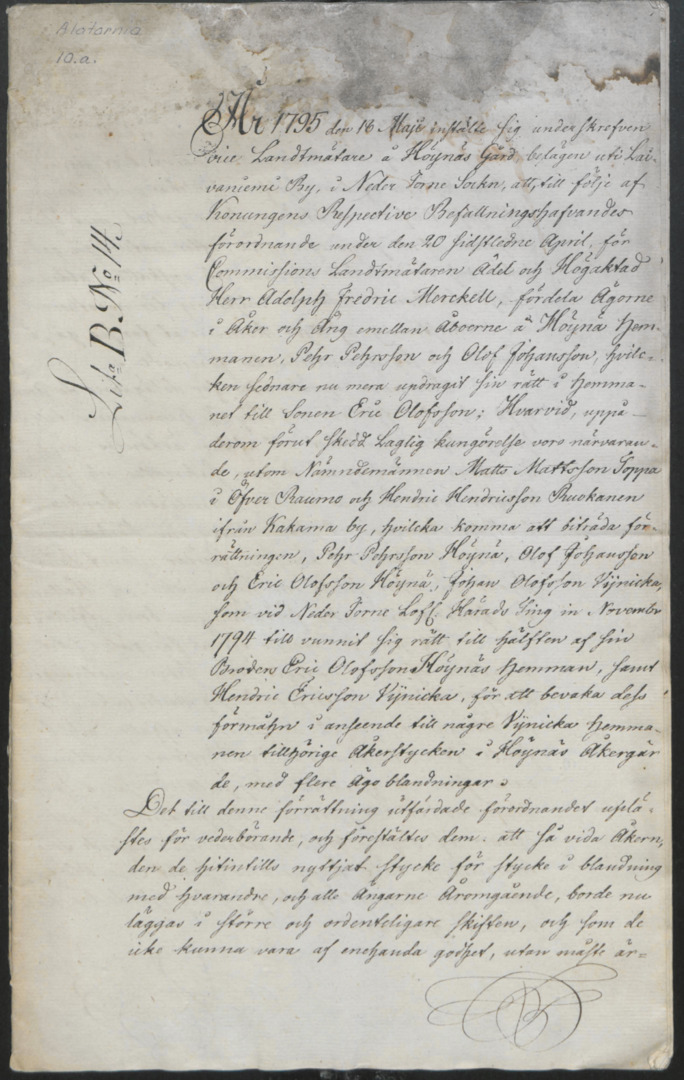 Alatornio
10.a.
Lit:a B. No: 14.
Åhr 1795 den 18 Maji instälte sig underskrefven
vice Landtmätare å Höynäs Gård, belägen uti Lai-
vaniemi By, i Neder Torne Sockn, att, till följe af
Konungens Respective Befallningshafvandes
förordnande under den 20 sidstledne April, för
Commissions Landtmätaren Ädel och Högaktad
Herr Adolph Fredric Morckell, fördela Ägorne
i Åker och Äng emellan Åboerne å Höynä Hem-
manen, Pehr Pehrsson och Olof Johansson, hvil-
ken sednare nu mera updragit sin rätt i Hemma-
net till Sonen Eric Olofsson; Hvarvid, uppå
derom förut skedd Laglig kungörelse voro närvaran-
de, utom Nämndemännen Matts Mattsson Toppa
i Öfver Raumo och Hendric Hendricsson Ruokanen
ifrån Kakama by, hvilcka komma att biträda för-
rättningen, Pehr Pehrsson Höynä, Olof Johansson
och Eric Olofsson Höynä, Johan Olofsson Vijnicka,
som vid Neder Torne Lofl. Härads Ting in Novembr
1794 till vunnit sig rätt till hälften af sin
Broders Eric Olofsson Höynäs Hemman, samt
Hendric Ericsson Vijnicka, för att bevaka dess
förmåhn i anseende till någre Vijnicka Hemma-
nen tillhörige Åkerstycken i Höynäs Åkergär-
de, med flere Ägo blandningar.
Det till denne förrättning utfärdade förordnandet uplä-
stes för vederbörande, och förestältes dem: att så vida Åkern,
den de hitintills nyttjat stycke för stycke i blandning
med hvarandre, och alle Ängarne Åromgående, borde nu
läggas i större och ordenteligare skiften, och som de
icke kunna vara af enehanda godhet, utan måste är=